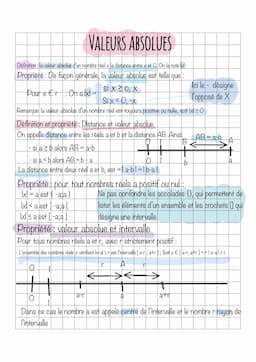 VALEURS ABSOLUES
Définition : la valeur absolue d'un nombre réel x la distance entre x et 0. On la note |x|
Propriété : De façon générale, la valeur absolue est telle que :
Pour x ∈ r . On a |x| = si x ≥ 0, x
Si x < 0, -x
Ici le - désigne
l'opposé de X
Remarque: la valeur absolue d'un nombre réel est toujours positive ou nulle, soit |x| ≥ 0
Définition et propriété : Distance et valeur absolue
On appelle distance entre les réels a et b et la distance AB. Ainsi
- si a ≥ b alors AB = a-b
- si a < b alors AB = b-a
La distance entre deux réel a et b, est = |a-b| = |b-a|
AB = a-b
B A
0 1 b a
Propriété : pour tout nombres réels a positif ou nul :
|x| = a est { -a;a }
|x| < a est ] -a;a [
|x| ≤ a est [ -a;a ]
Ne pas confondre les accolades {}, qui permettent de
lister les éléments d'un ensemble et les crochets [] qui
désigne une intervalle.
Propriété : valeur absolue et intervalle
Pour tous nombres réels a et r, avec r strictement positif :
r A r
0 1 a-r a a+r
Dans ce cas le nombre a est appelé centre de l'intervalle et le nombre r rayon de
l'intervalle